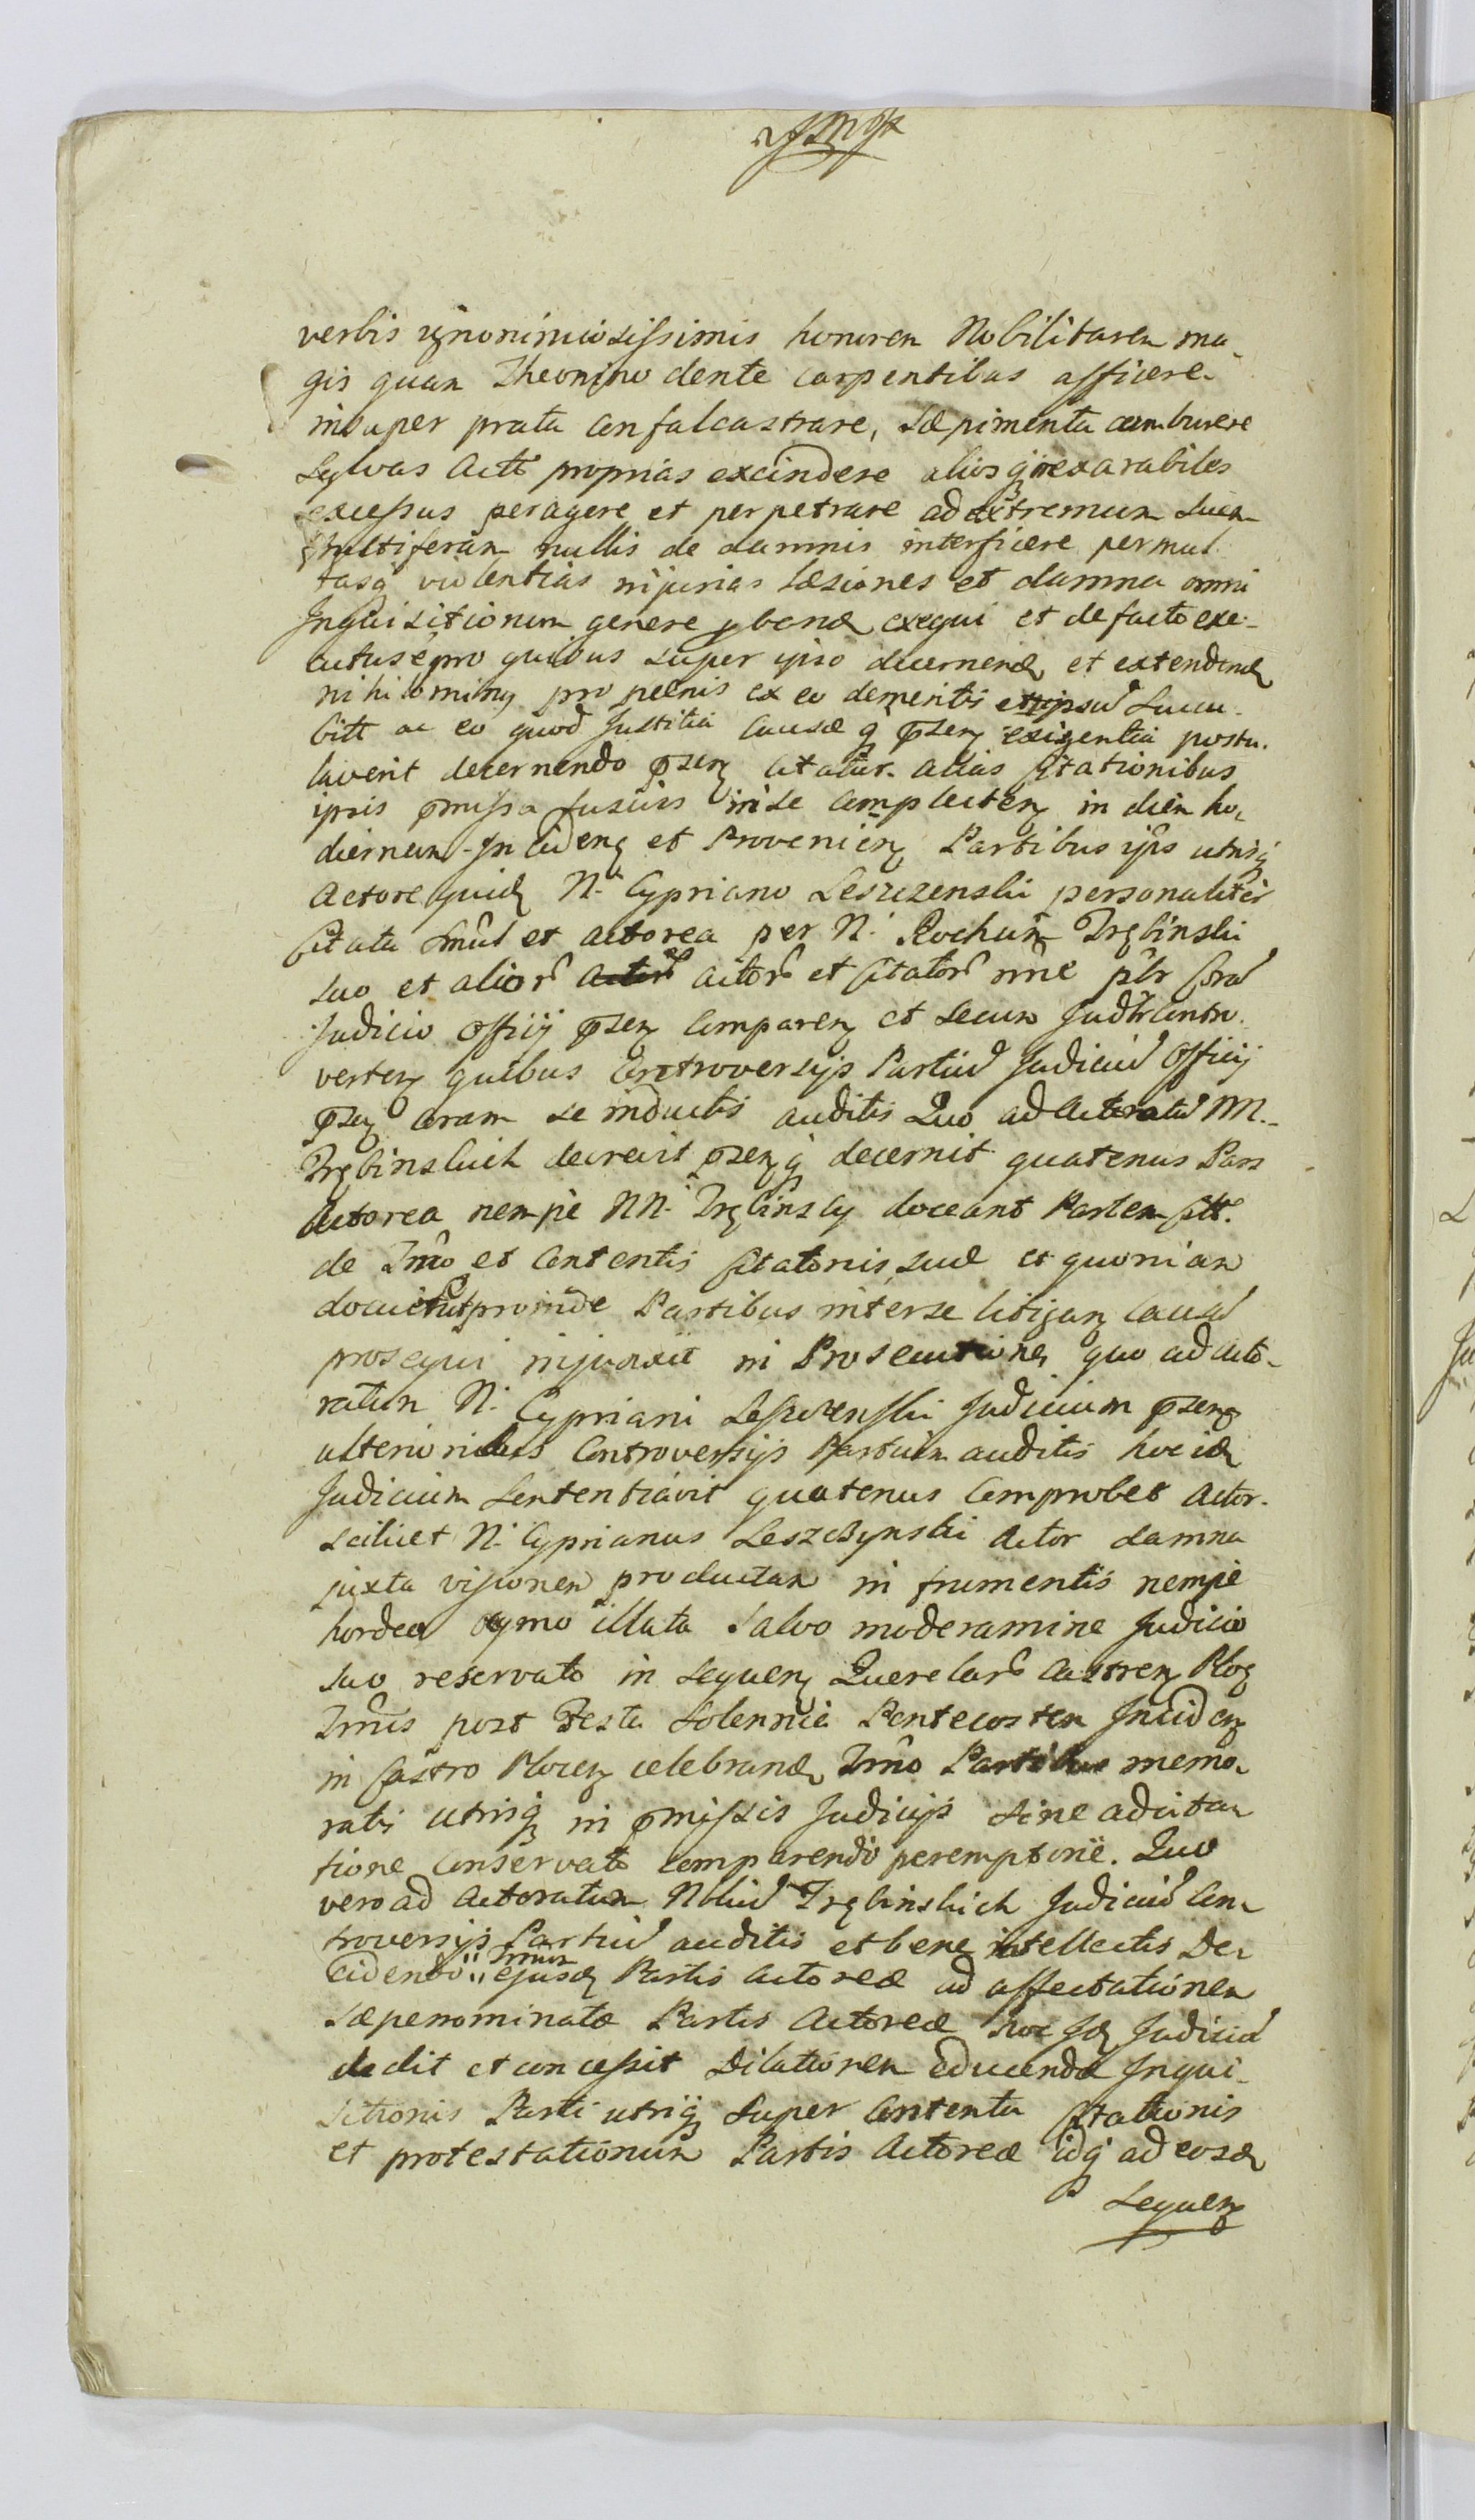 verbis ignonimiosissimis honorem Nobilitarem ma-
gis quam Theonino dente carpentibus afficere
insuper prata confalcastrare, sæpimenta comburere
Sylvas Actt proprias excindere aliosq inexarabiles
excessus peragere et perpetrare ad extremum Suem
fructiferam nullis de damnis interficere permul-
tasq violentias injurias læsiones et damna omni
Inquisitionum genere pband exequi et de facto exe-
cutus e pro quibus super ipso decernend et extendend
nihilominq pro pœnis ex eo demeritis et ipsu Succu-
bitt ac eo quod Justitia Causæ q pszenz exigentia postu-
laverit decernendo pszenz Citatur alias Citationibus
ipsis pmissa fusius in se complecten in diem ho-
diernum Incidenz et Provenienz Partibus ipsis utrisq
Actore quidz N. Cypriano Leszczenski personaliter
Citata simul et actorea per N. Rochum Trębinski
suo et alior Actor et Citator nne plr Cora
Judicio Officij pszenz comparenz et secum Judtr contro-
vertenz quibus Controversijs Partiu Judiciu Officij
pszenz coram se inductis auditis Quo ad Actoratu NN.
Trębinskich decrevit pszenzq decernit quatenus Pars
Actorea nempe NN. Trębinscy doceant Partem Citt.
de Tmo et Contentis Citatonis suæ et quoniam
docuit ut proinde Partibus inter se litiganz Causa
prosequi injunxit in Prosecutione quo ad acto-
ratum N. Cypriani Leszczenski Judicium pszenz
ulterioribus Controversijs Partium auditis hoc idz
Judicium Sententiavit quatenus Comprobet Actor
scilicet N. Cyprianus Leszczynski Actor damna
juxta visionem productam in frumentis nempe
hordeo oymo illata Salvo moderamine Judicio
suo reservato in sequenz Querelar Castrenz Ploc
Tmis post Festa Solennia Pentecosten Incidenz
in Castro Plocenz celebrand Tmo Partibus memo-
ratis utrisq in pmissis Judicijs sine adcita-
tione conservato comparendi peremptorie. Quo
vero ad Actoratum Nbliu Trębinskich Judiciu Con-
troversijs Partiu auditis et bene intellectis De-
cidendo " Tmum " ejusdz Partis Actoreæ ad affectationem
sæpenominatæ Partis Actoreæ hoc Idz Judiciu
dedit et concessit Dilationem educendæ Inqui-
sitionis Parti utriq super Contenta Citationis
et protestationum Partis Actoreæ idq ad eosdz
Sequenz